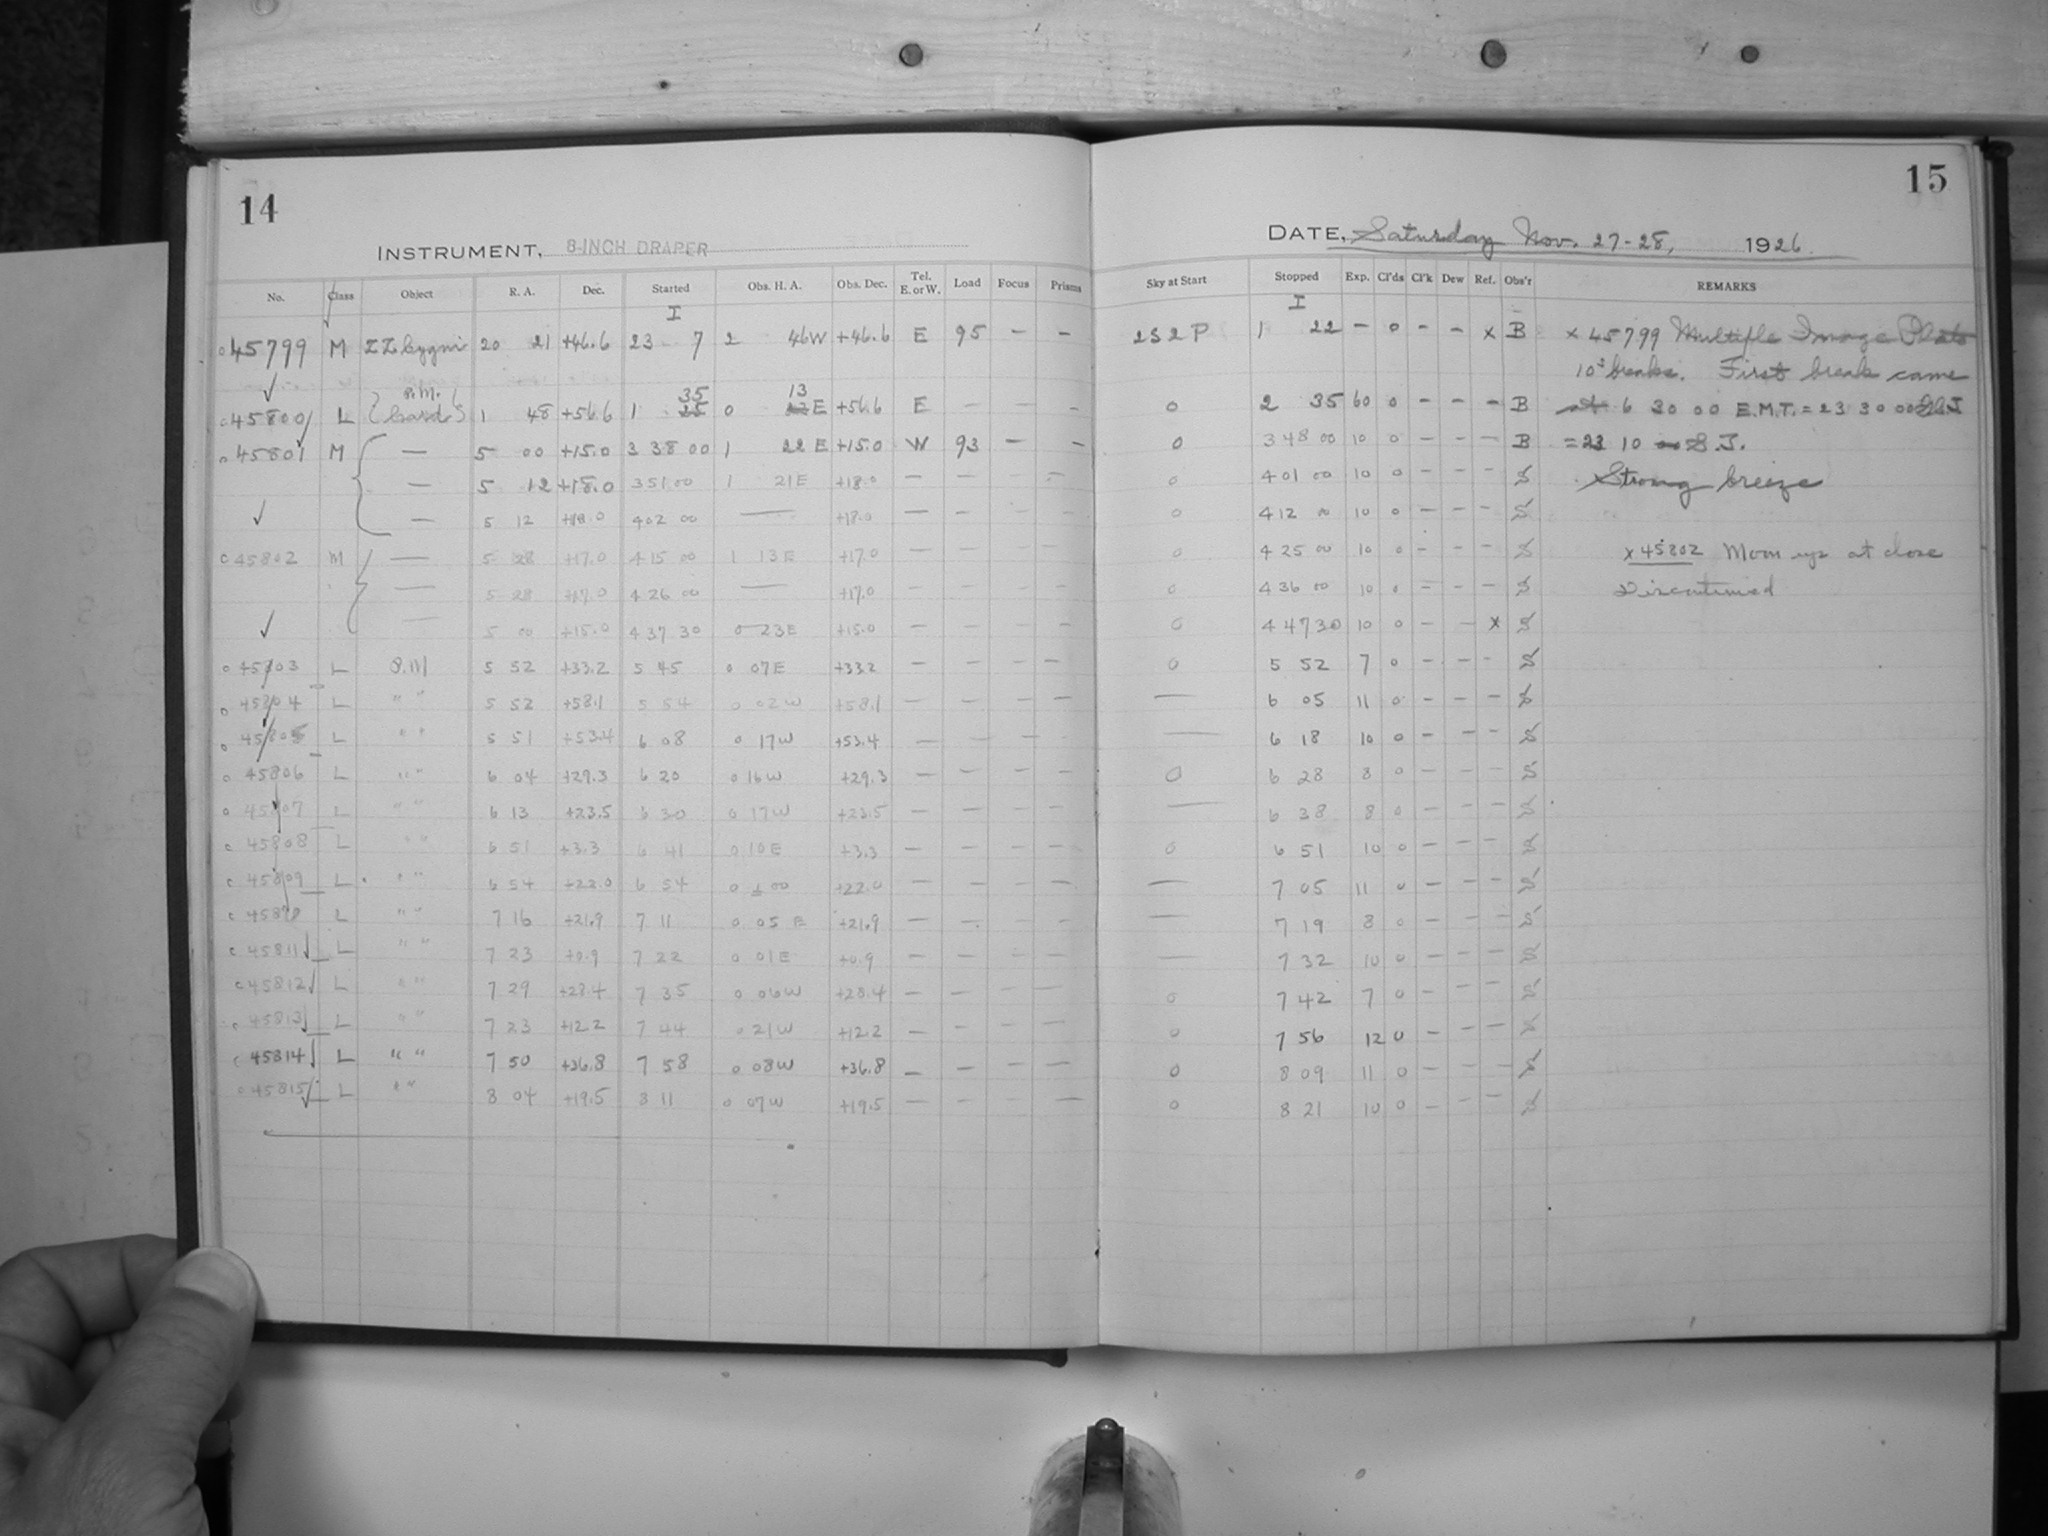 14
INSTRUMENT, 8-INCH DRAPER
No. Class Object R. A. Dec. Started Obs. H. A. Obs. Dec. Tel. E. or W. Load Focus Prisms
I
45799 M ZZ Cygni 20 21 +46.6 23 7 2 46W +46.6 E 95 — —
P.M. 35 13
45800 L (Card) 1 48 +56.6 1 25 0 23 E +56.6 E — — —
45801 M — 5 00 +15.0 3 38 00 1 22 E +15.0 W 93 — —
— 5 12 +18.0 3 51 00 1 21E +18.0 — — — —
— 5 12 +18.0 4 02 00 — +18.0 — — — —
45802 M — 5 28 +17.0 4 15 00 1 13E +17.0 — — — —
— 5 28 +17.0 4 26 00 — +17.0 — — — —
— 5 00 +15.0 4 37 30 0 23E +15.0 — — — —
45803 L 5 52 +33.2 5 45 0 07E +33.2 — — — —
45804 L " " 5 52 +58.1 5 54 0 02W +58.1 — — — —
45805 L " " 5 51 +53.4 6 08 0 17W +53.4 — — — —
45806 L " " 6 04 +29.3 6 20 0 16W +29.3 — — — —
45807 L " " 6 13 +23.5 6 30 0 17W +23.5 — — — —
45808 L " " 6 51 +3.3 6 41 0 10E +3.3 — — — —
45809 L " " 6 54 +22.0 6 54 0 ±00 +22.0 — — — —
45810 L " " 7 16 +21.9 7 11 0 05 E +21.9 — — — —
45811 L " " 7 23 +0.9 7 22 0 01E +0.9 — — — —
45812 L " " 7 29 +28.4 7 35 0 06W +28.4 — — — —
45813 L " " 7 23 +12.2 7 44 0 21W +12.2 — — — —
45814 L " " 7 50 +36.8 7 58 0 08W +36.8 — — — —
45815 L " " 8 04 +19.5 8 11 0 07W +19.5 — — — —
15
DATE, Saturday Nov. 27-28, 1926.
Sky at Start Stopped Exp. Cl'ds Cl'k Dew Ref. Obs'r REMARKS
I
2S2P 1 22 — 0 — — x B x 45799 Multiple Image Plate
10± breaks. First break came
0 2 35 60 0 — — — B at 6 30 00 E.M.T. = 23 30 00
0 3 48 00 10 0 — — B = 23 10 S.T.
0 4 01 00 10 0 — — — S Strong breeze
0 4 12 00 10 0 — — — S
0 4 25 00 10 0 — — — S x 45802 Moon up at close
0 4 36 00 10 0 — — — S Discontinued
0 4 47 30 10 0 — — x S
0 5 52 7 0 — — — S
— 6 05 11 0 — — — S
— 6 18 10 0 — — — S
0 6 28 8 0 — — — S
— 6 38 8 0 — — — S
0 6 51 10 0 — — — S
— 7 05 11 0 — — — S
— 7 19 8 0 — — — S
— 7 32 10 0 — — — S
0 7 42 7 0 — — — S
0 7 56 12 0 — — — S
0 8 09 11 0 — — — S
0 8 21 10 0 — — — S